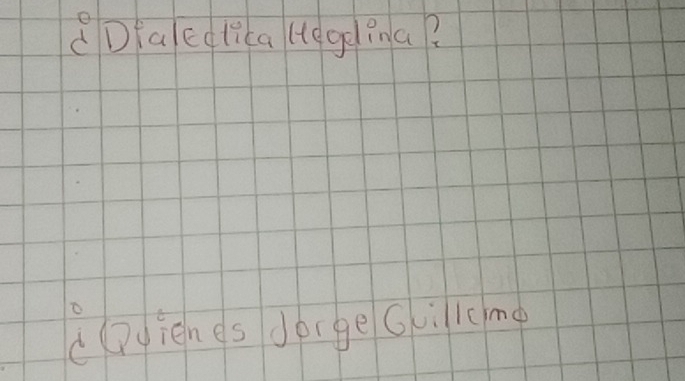 ¿Dialectica Hegelina?
¿Quienes Jorge Guillermo